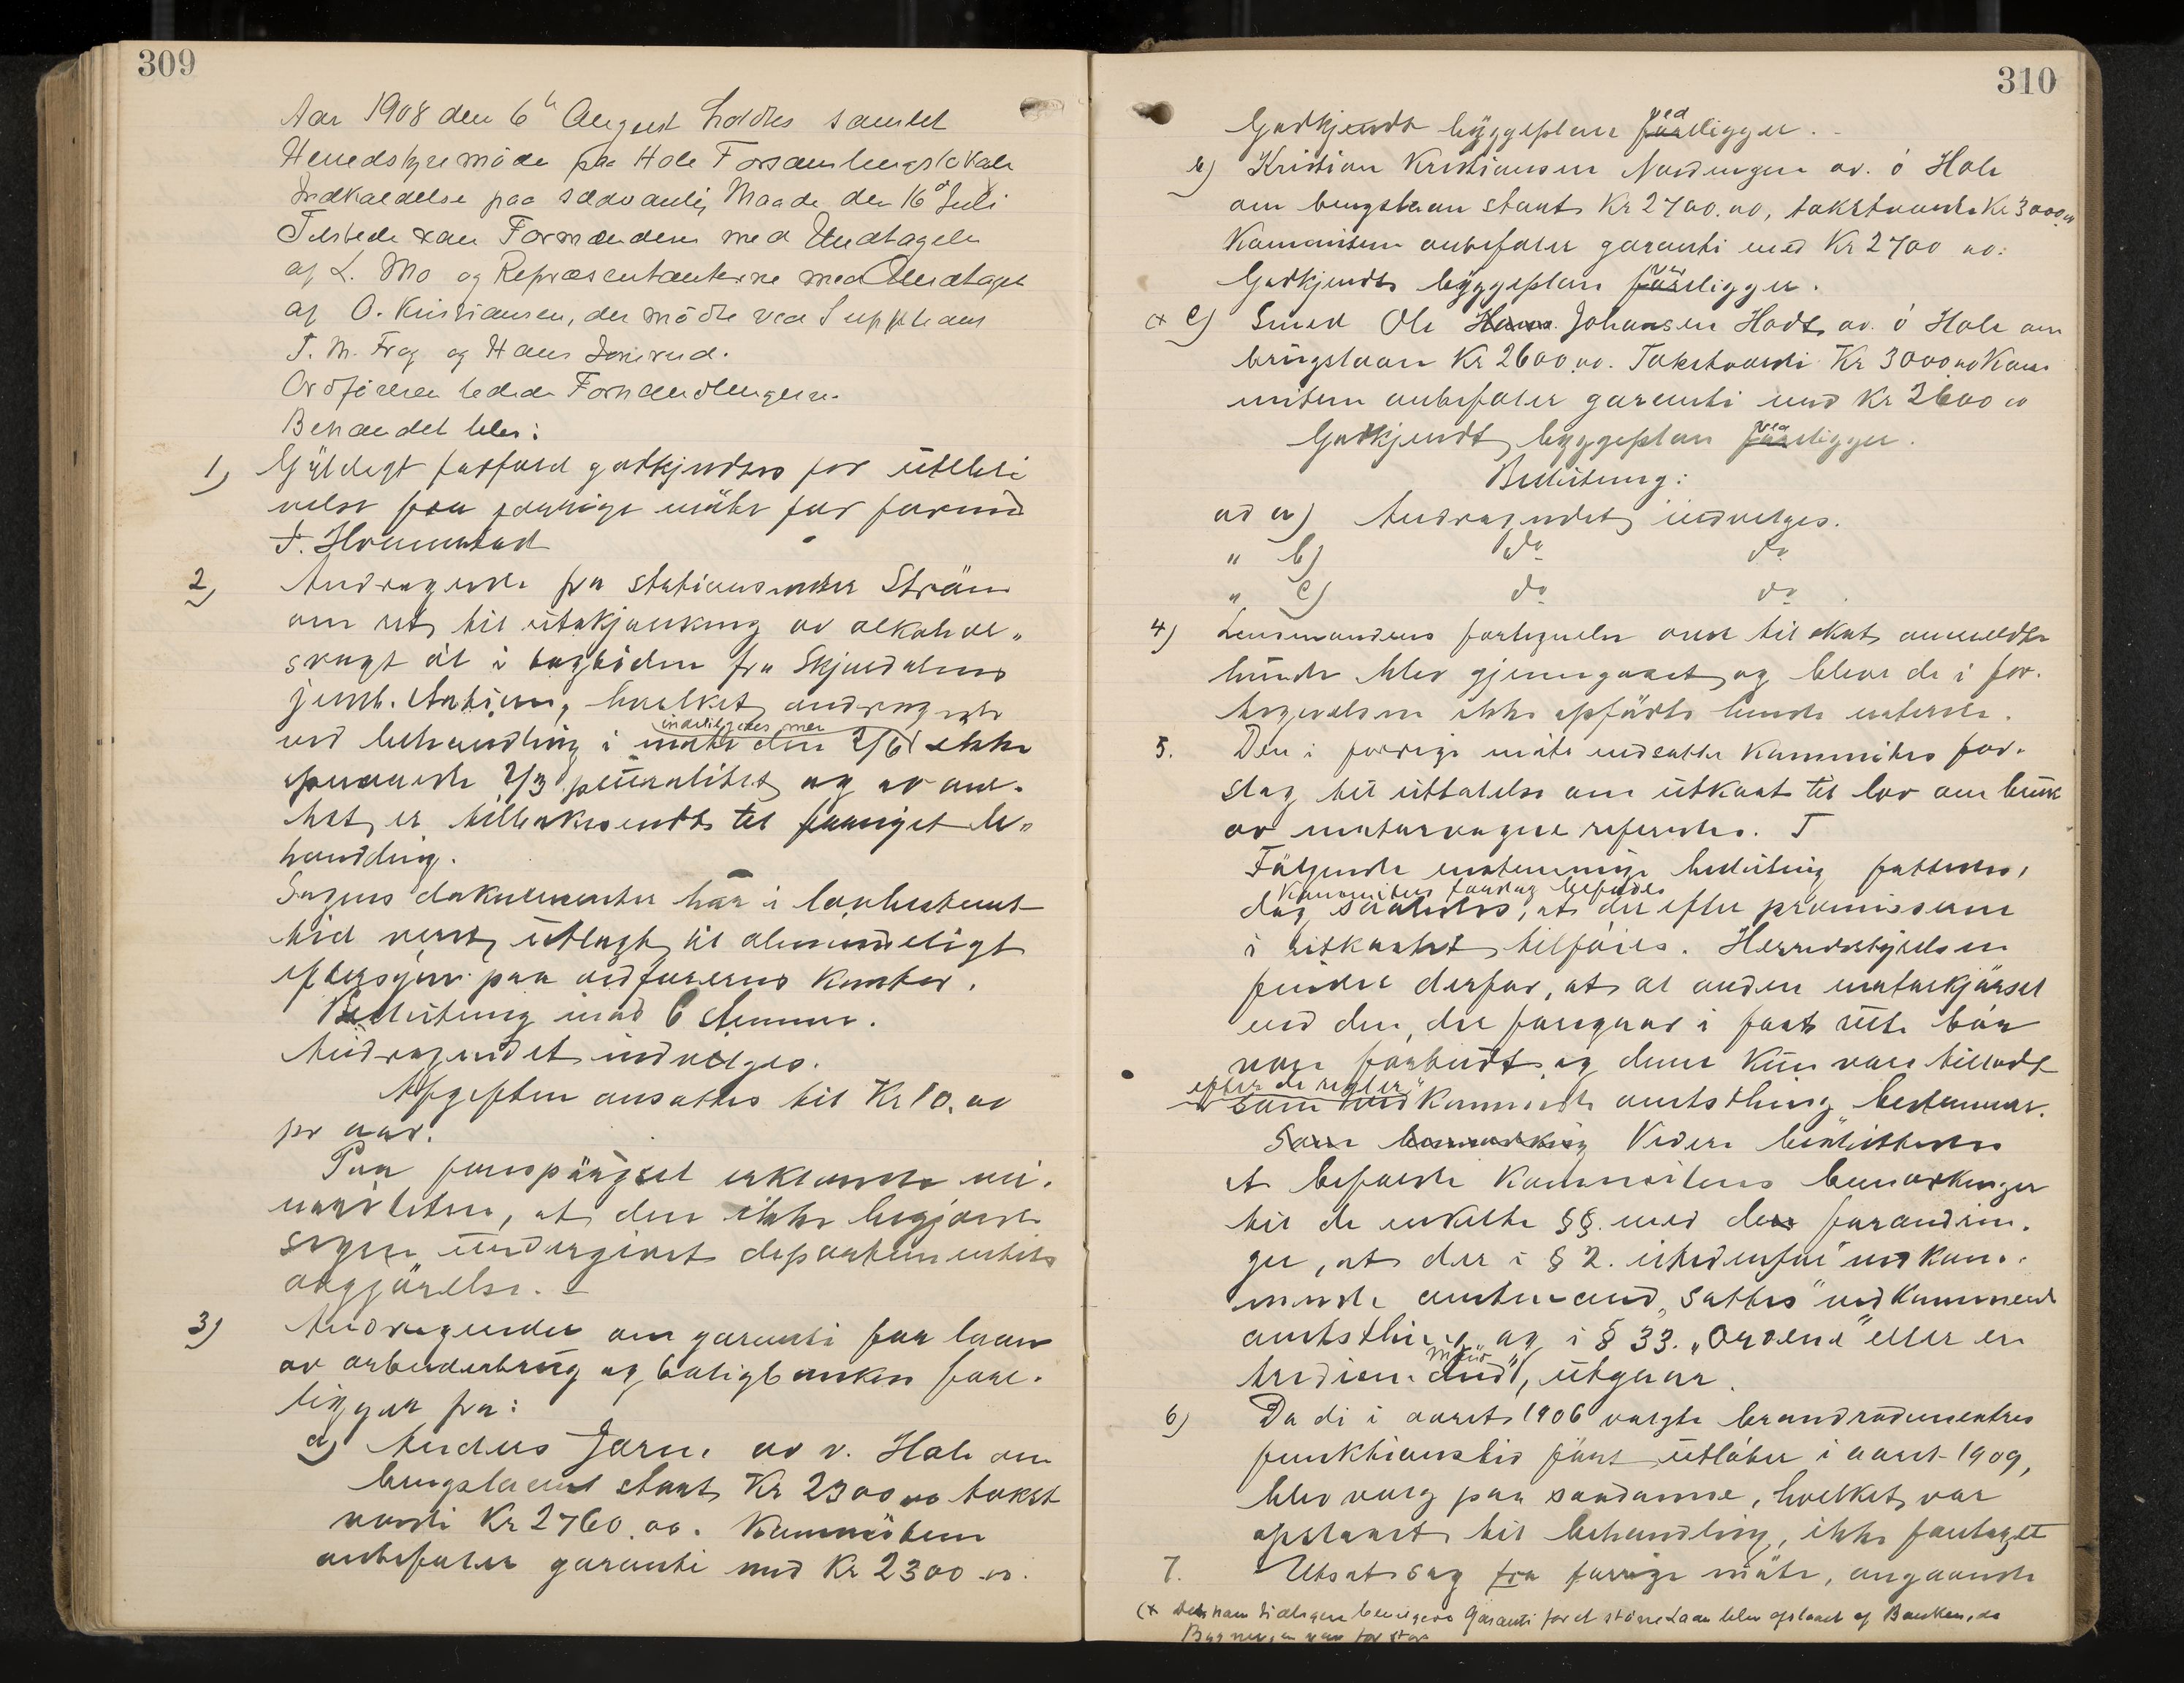 309
Aar 1908 den 6te August holdtes samlet
Herredstyremöde paa Hole Forsamlingslokale
Indkaldelse paa sædvanlig Maade den 16de Juli
Tilstede var Formændene med Undtagelse
af L. Mo og Repræsentanterne med Undtagelse
af O. Kristiansen, der mödte ved Suppleant
T. M. Frog og Hans
Ordföreren ledede Forhandlingerne.
Behandlet blev:
1) Gyldigt forfald godkjendtes for utebli
velse fra forrige möte for formd
F. Hornnatad
2) Andragende fra stationsmester Ström
om ret til utskjænkning av alkohol„
svagt öl i togtiden fra Skjærdalens
jernb. station, hvilket andragende
indvilgedes men
ved behandling i möte den 2/6 ikke
opnaaede 2/3 pluralitet og av am-
tet er tilbakesendt til fornyet be„
handling.
Sagens dokumenter har i lovbestemt
tid været utlagt til almindeligt
eftersyn paa ordförerens kontor.
Beslutning mod 6 stemmer.
Andragendet indvilges.
Afgiften ansattes til Kr 10.00
pr aar.
Paa forespörgsel erklærede mi-
noriteten, at den ikke begjærede
sagen undergivet departementets
avgjörelse. –
3) Andragender om garanti for laan
av arbeiderbruk og boligbanken fore-
ligger fra:
a) Anders Jørn. av v. Hole om
brugslaan stort Kr 2300 00 takst
værdi Kr 2760.00. Kommiteen
anbefaler garanti med Kr 2300.00.
310
Godkjendt byggeplan foreligger. ved
b) Kristian Kristiansen Nordengen av ö Hole
om brugslaan stort Kr 2700.00, takstværdi Kr 3000.00
Komiteen anbefaler garanti med Kr 2700 00.
Godkjendt byggeplan foreligger. ved
(x c) Smed Ole Hans. Johansen Hodt av ö Hole om
brugslaan Kr 2600.00. Takstværdi Kr 3000.00 Kom
miteen anbefaler garanti med Kr 2600 00
Godkjendt byggeplan foreligger. ved
Beslutning:
ad a) Andragendet indvilges.
„ b) do do
„ c) do do.
4) Lensmandens fortegnelse over til skat anmeldte
hunde blev gjennemgaaet og blev de i for-
tegnelsen ikke opförte hunde
5. Den i forrige möte nedsatte kommites for-
slag til uttalelse om utkast til lov om bruk
av motorvogne refereres. T
Fölgende enstemmige beslutning fattedes,
Kommiteens forslag befodes
dog saaledes, at der efter præmisserne
i utkastet tilföies. Herredstyrelsen
finder derfor, at al anden motorkjörsel
end den, der foregaar i fast rute bör
være forbudt og denne kun være tilladt
efter de regler"
som vedkommende amtsthing bestemmer.
Som bemærkning Videre besluttedes
at befodre kommiteens bemærkninger
til de enkelte §§. med den forandrin-
ger, at der i § 2. istedenfor "vedkom-
mende amtmand„ sættes "vedkommende
amtsthing og i § 33. „ordene" eller en
tredie mand", utgaar.
6) Da de i aaret 1906 valgte brandraadsmenters
funktionstid först utlöber i aaret 1909,
blev valg paa saadanne, hvilket var
opslaaet til behandling, ikke foretaget
7. Utsat sag fra forrige möte, angaaende
(x Den ham tidligere bevilgede Garanti for et större Laan blev afslaaet af Banken, da
Bygningen var for stor